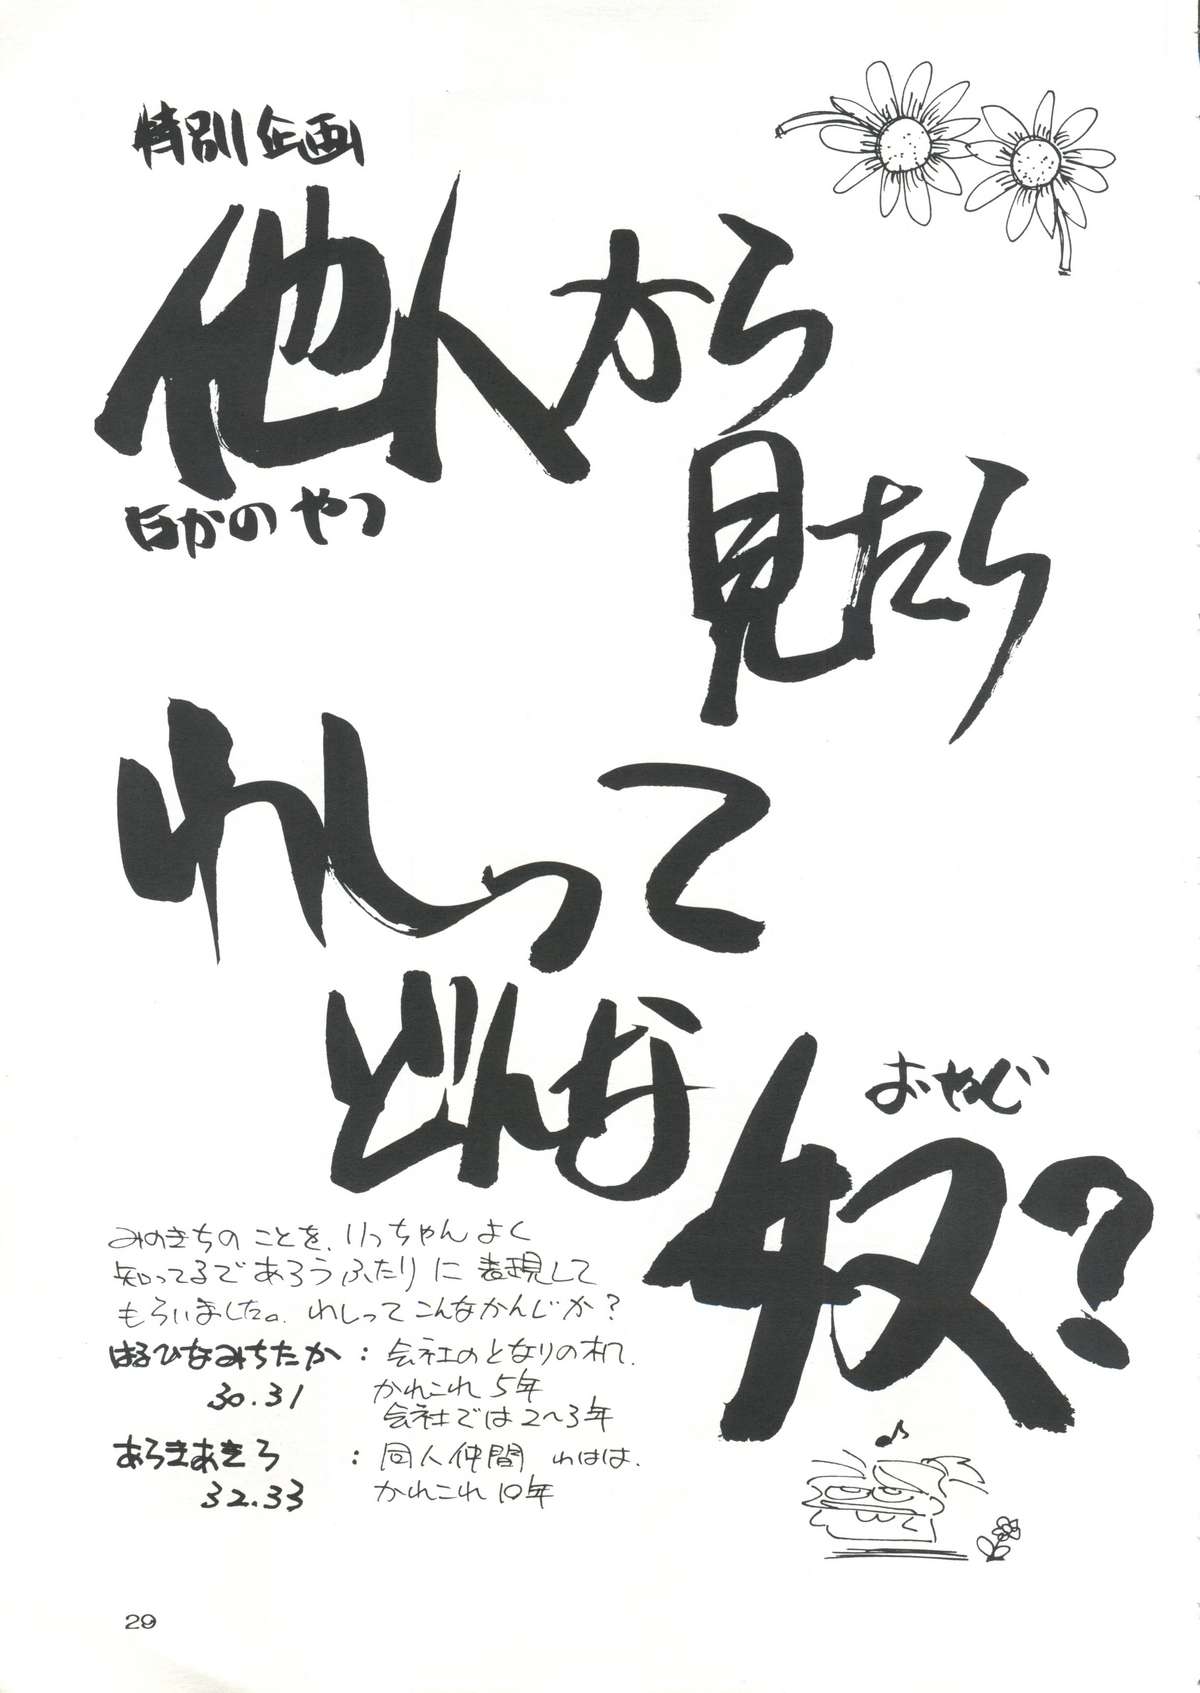 特別企画
他人から
ほかのやつ
見たら
わしって
どんな
おやじ
奴?
みのきちのことを、りっちゃんよく
知ってるであろうふたりに表現して
もらいました。わしってこんなかんじか?
はるひなみちたか:会社のとなりの机で
30.31 かれこれ5年
会社では2〜3年
あろきあきろ:同人仲間 わはは
32.33 かれこれ10年
29